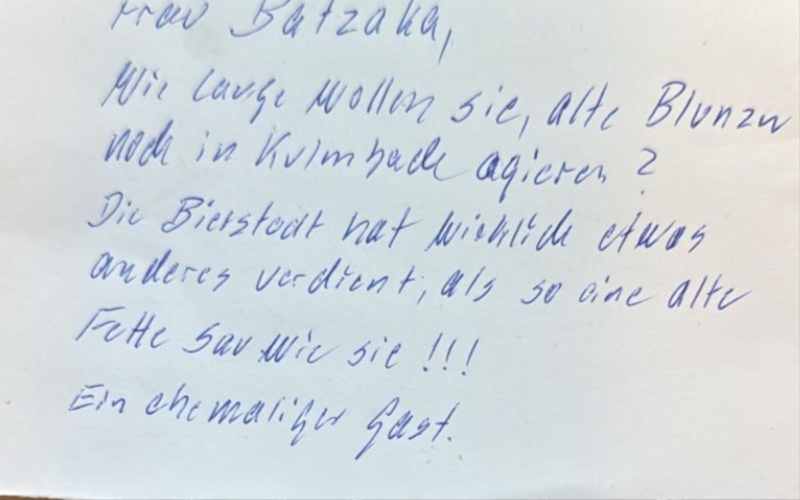 Frau Batzaka,
Wie lange wollen sie, alte Blunzn
noch in Kulmbach agieren?
Die Bierstadt hat wirklich etwas
anderes verdient, als so eine alte
Fette Sau wie sie!!!
Ein ehemaliger Gast.